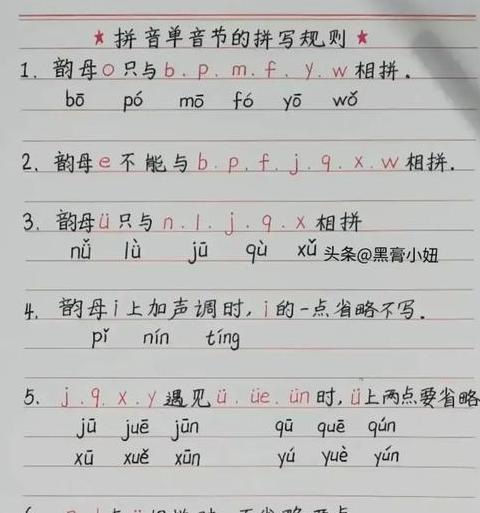 ★拼音单音节的拼写规则★
1. 韵母o只与b.p.m.f.y.w相拼.
bō pó mō fó yō wǒ
2. 韵母e不能与b.p.f.j.q.x.w相拼.
3. 韵母ü只与n.l.j.q.x相拼
nǚ lǜ jū qù xǔ 头条@黑膏小妞
4. 韵母i上加声调时,i的一点省略不写.
pǐ nín tíng
5. j.q.x.y遇见ü.üe.ün时,ü上两点要省略
jū juē jūn qū quē qún
xū xuě xūn yú yuè yún